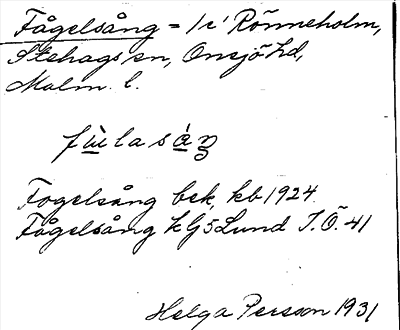 Fågelsång = /c' Rönneholm,
Stehags sn, Onsjö hd,
Malm. l.
fùlasàŋ
Fogelsång bek, kb 1924.
Fågelsång k G5 Lund I.Ö. 41
Helga Persson 1931